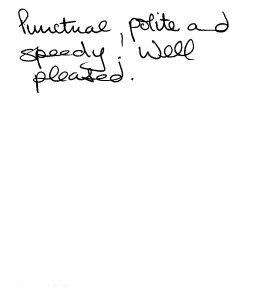 Punctual, polite and
speedy. Well
pleased.